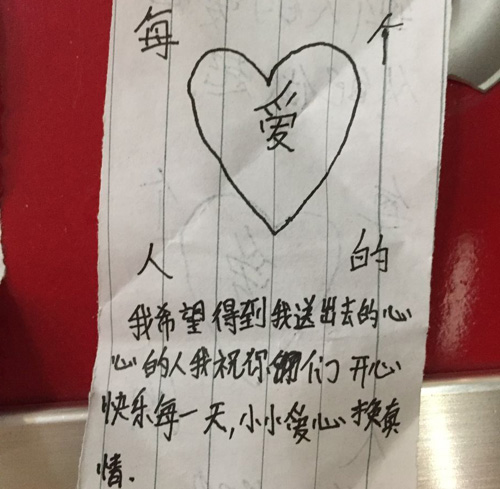 每个
爱
人的
我希望得到我送出去的心
心的人我祝你们们开心
快乐每一天,小小爱心换真
情.